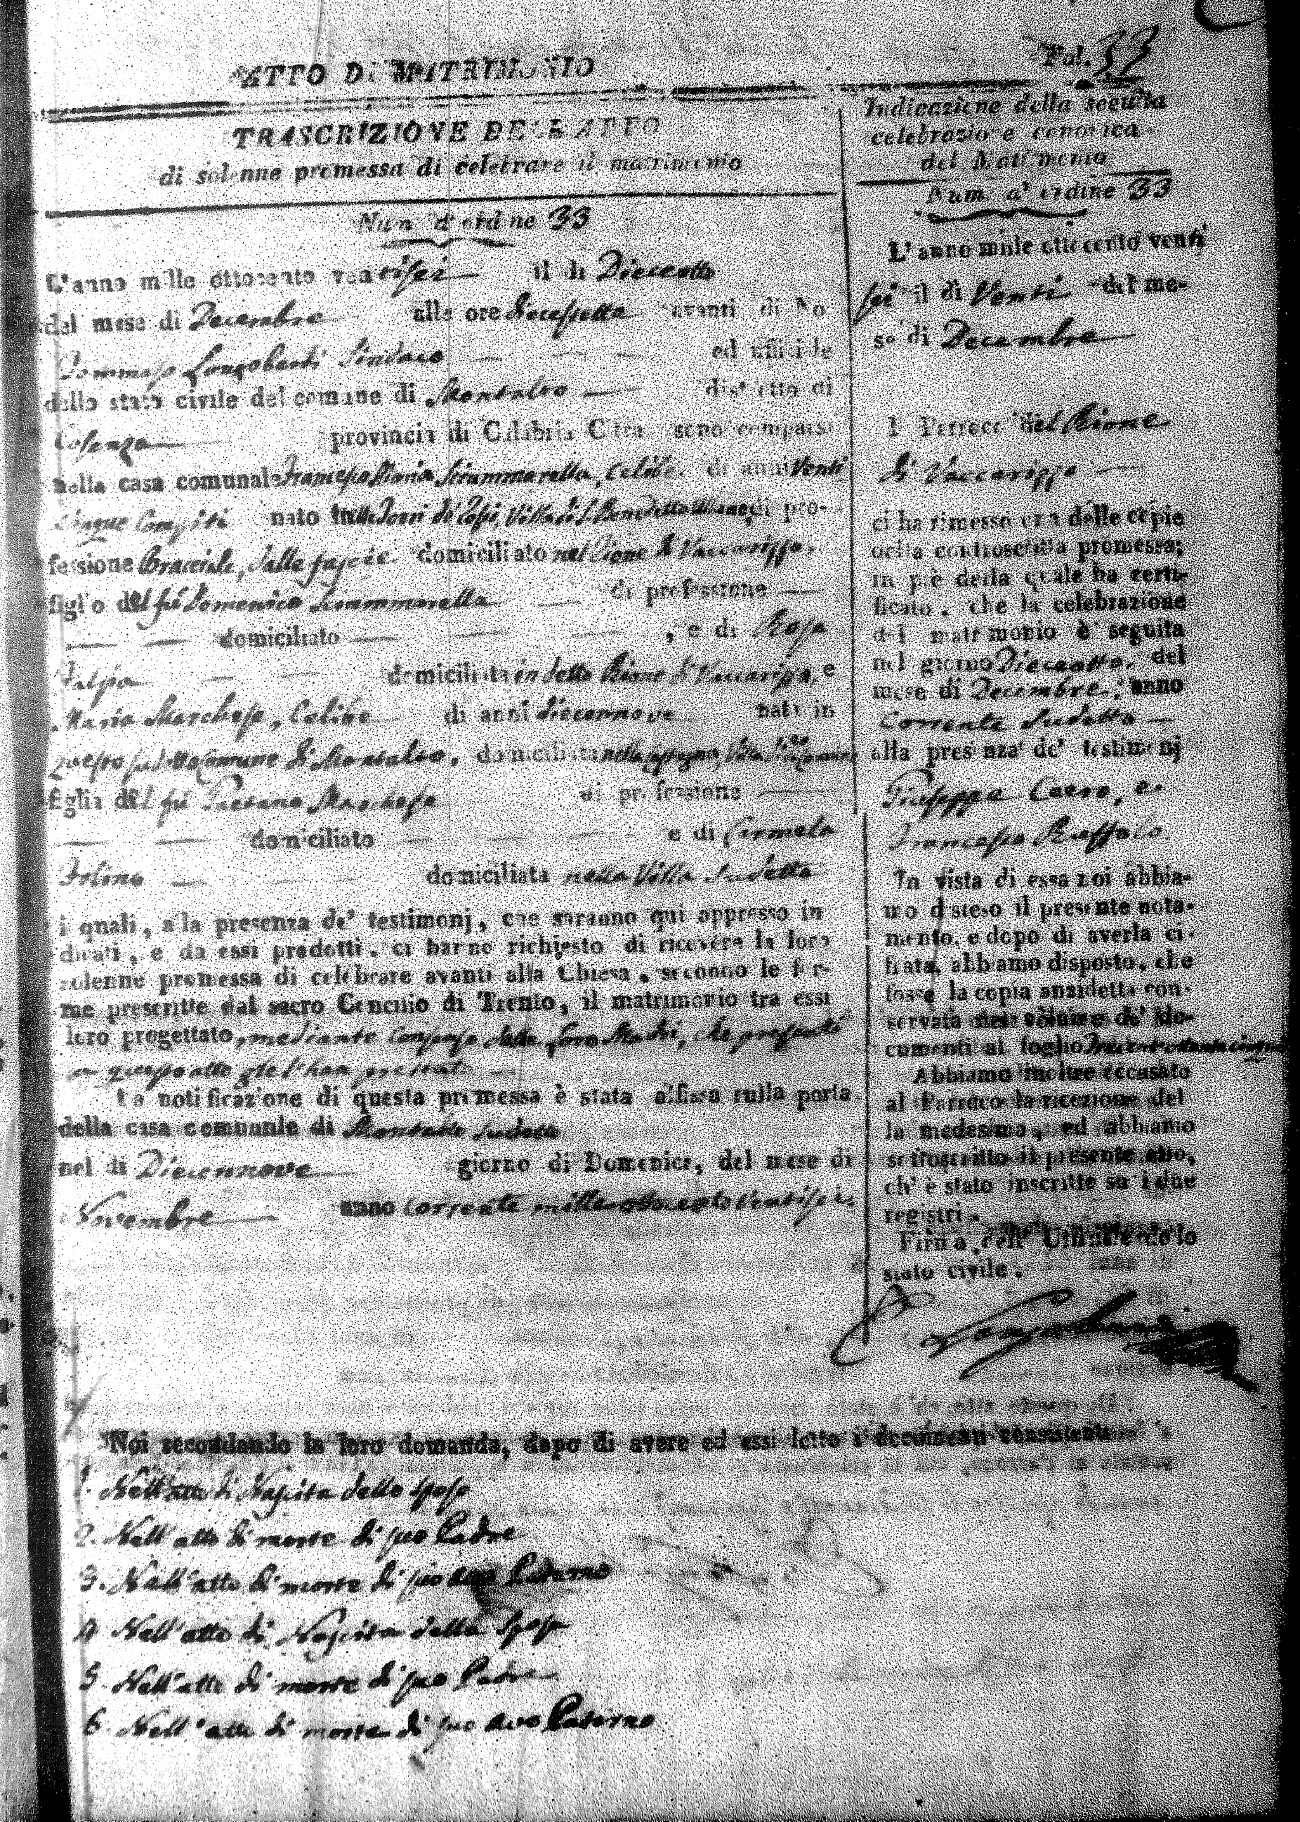 Fol. 33
ATTO DI MATRIMONIO
TRASCRIZIONE DELL'ATTO
di solenne promessa di celebrare il matrimonio
Num. d'ordine 33
L'anno mille ottocento ventisei il di Dieciotto
del mese di Decembre alle ore diecisette avanti di No
Tommaso Longobardi Sindaco ed uffiziale
dello stato civile del comune di Montalto distretto di
Cosenza provincia di Calabria Citra sono comparsi
nella casa comunale Francesco Maria Scrammarella, celibe di anni venti
cinque compiti nato di pro-
fessione Bracciale, domiciliato nel Rione di Vaccarizzo,
figlio del fu Domenico Scrammarella di professione
domiciliato , e di Rosa
domiciliata in detto Rione di Vaccarizzo, e
Maria Marchese, Celibe di anni diecennove nata in
questo sudetto Comune di Montalto, domiciliata
figlia del fu Gaetano Marchese di professione
domiciliato e di Carmela
domiciliata nella Villa Sudetta
i quali, alla presenza de' testimonj, che saranno qui appresso in
dicati, e da essi prodotti, ci hanno richiesto di ricevere la loro
solenne promessa di celebrare avanti alla Chiesa, secondo le for-
me prescritte dal sacro Concilio di Trento, il matrimonio tra essi
loro progettato, mediante consenso delle loro Madri, che presenti
in questo atto gle l'han prestato
La notificazione di questa promessa è stata affissa sulla porta
della casa comunale di Montalto sudetto
nel di Diecennove giorno di Domenica, del mese di
Novembre anno corrente mille ottocento ventisei.
Indicazione della seguita
celebrazione canonica
del Matrimonio
Num. d'ordine 33
L'anno mille ottocento venti
sei il di Venti del me-
se di Decembre
Il Parroco del Rione
di Vaccarizzo
ci ha rimesso una delle copie
della controscritta promessa;
in piè della quale ha certi-
ficato, che la celebrazione
del matrimonio è seguita
nel giorno Dieciotto, del
mese di Decembre, anno
corrente sudetto
alla presenza de' testimonj
Giuseppe Caero, e
Francesco Ruffolo
In vista di essa noi abbia-
mo disteso il presente nota-
mento, e dopo di averla ci-
frata, abbiamo disposto, che
fosse la copia anzidetta con-
servata nel volume de' do-
cumenti al foglio
Abbiamo inoltre accusato
al Parroco la ricezione del
la medesima, ed abbiamo
sottoscritto il presente atto,
ch' è stato inscritto su i due
registri.
Firma dell' Uffiziale dello
stato civile.
Longobardi
Noi secondando la loro domanda, dopo di avere ad essi letto i documenti consistenti
1. Nell'atto di Nascita dello sposo
2. Nell'atto di morte di suo Padre
3. Nell'atto di morte di suo avo Paterno
4. Nell'atto di Nascita della sposa
5. Nell'atto di morte di suo Padre
6. Nell'atto di morte di suo avo Paterno